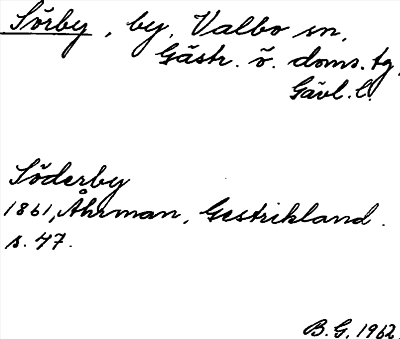 Sörby, by, Valbo sn,
Gästr. ö. doms. tg,
Gävl. l.
Söderby
1861, Åhrman, Gestrikland.
s. 47.
B.G. 1962.